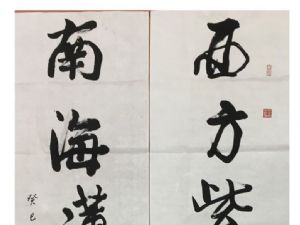 西方紫
南海
癸巳